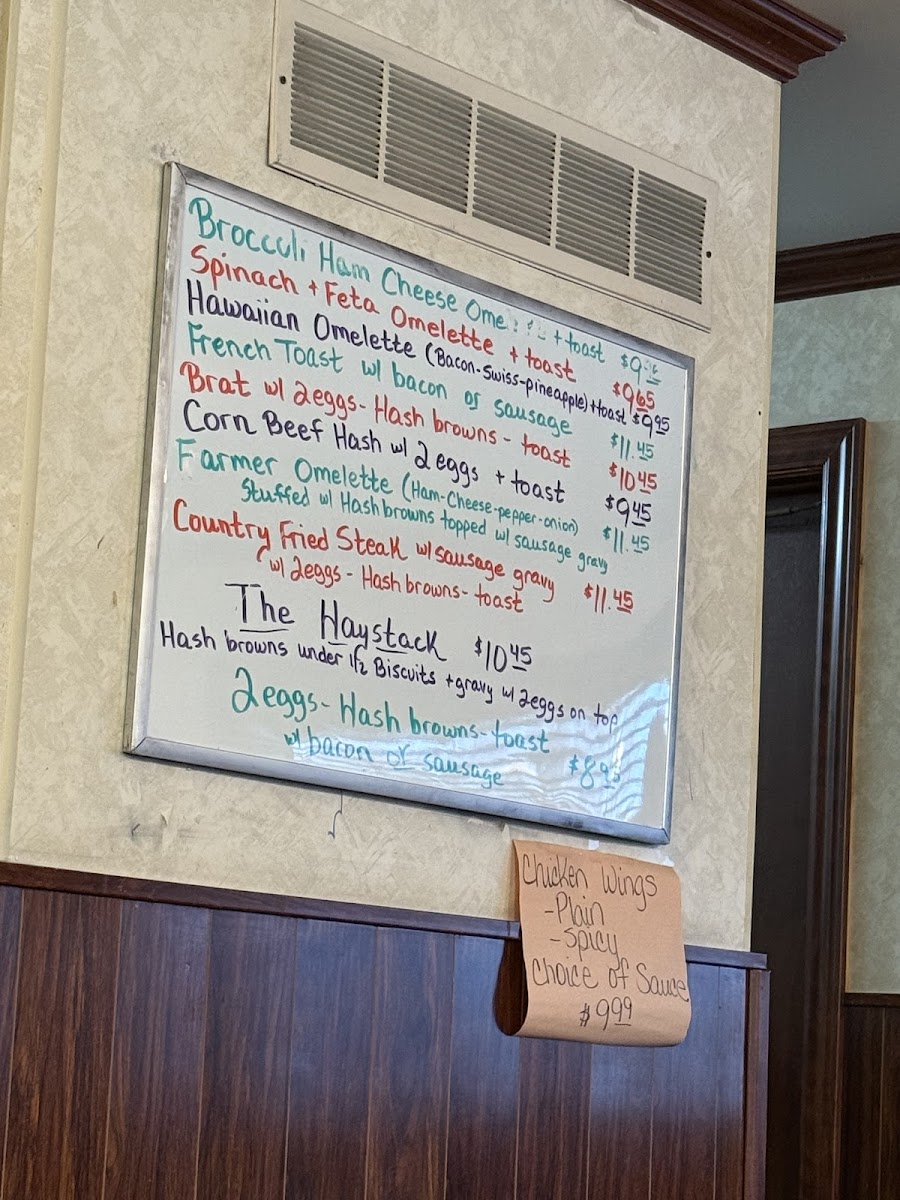 Broccoli Ham Cheese + toast
Spinach + Feta Omelette + toast $9.65
Hawaiian Omelette (Bacon-Swiss-pineapple) + toast $9.95
French Toast w/ bacon or sausage $11.45
Brat w/ 2eggs - Hash browns - toast $10.45
Corn Beef Hash w/ 2 eggs + toast $9.45
Farmer Omelette (Ham-Cheese-pepper-onion) $11.45
Stuffed w/ Hashbrowns topped w/ sausage gravy
Country Fried Steak w/ sausage gravy $11.45
w/ 2eggs - Hash browns - toast
The Haystack $10.45
Hash browns under 1/2 Biscuits + gravy w/ 2eggs on top
2eggs - Hash browns - toast
w/ bacon or sausage $8.95
Chicken Wings
- Plain
- Spicy
Choice of Sauce
$9.99